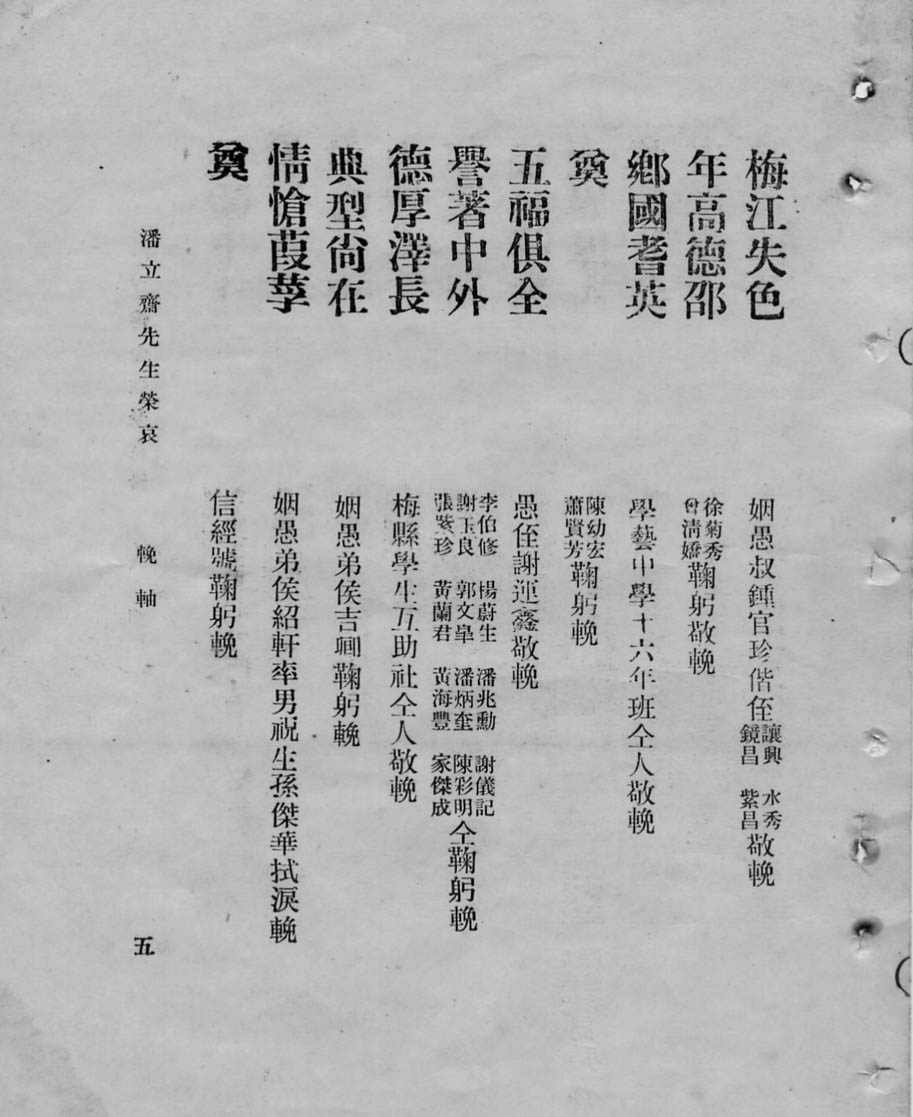 梅江失色 姻愚叔鍾官珍偕侄讓興 鏡昌 水秀 紫昌敬輓
年高德邵 徐菊秀 曾淸嬌鞠躬敬輓
鄉國耆英 學藝中學十六年班仝人敬輓
奠 陳幼宏 蕭賢芳鞠躬輓
五福俱全 愚侄謝運鑫敬輓
譽著中外 李伯修 謝玉良 張紫珍 楊蔚生 郭文臯 黃蘭君 潘兆勳 潘炳奎 黃海豐 謝儀記 陳彩明 家傑成仝鞠躬輓
德厚澤長 梅縣學生互助社仝人敬輓
典型尙在 姻愚弟侯吉鞠躬輓
情愴葭莩 姻愚弟侯紹軒率男祝生孫傑華拭淚輓
奠 信經號鞠躬輓
潘立齋先生榮哀 輓軸 五